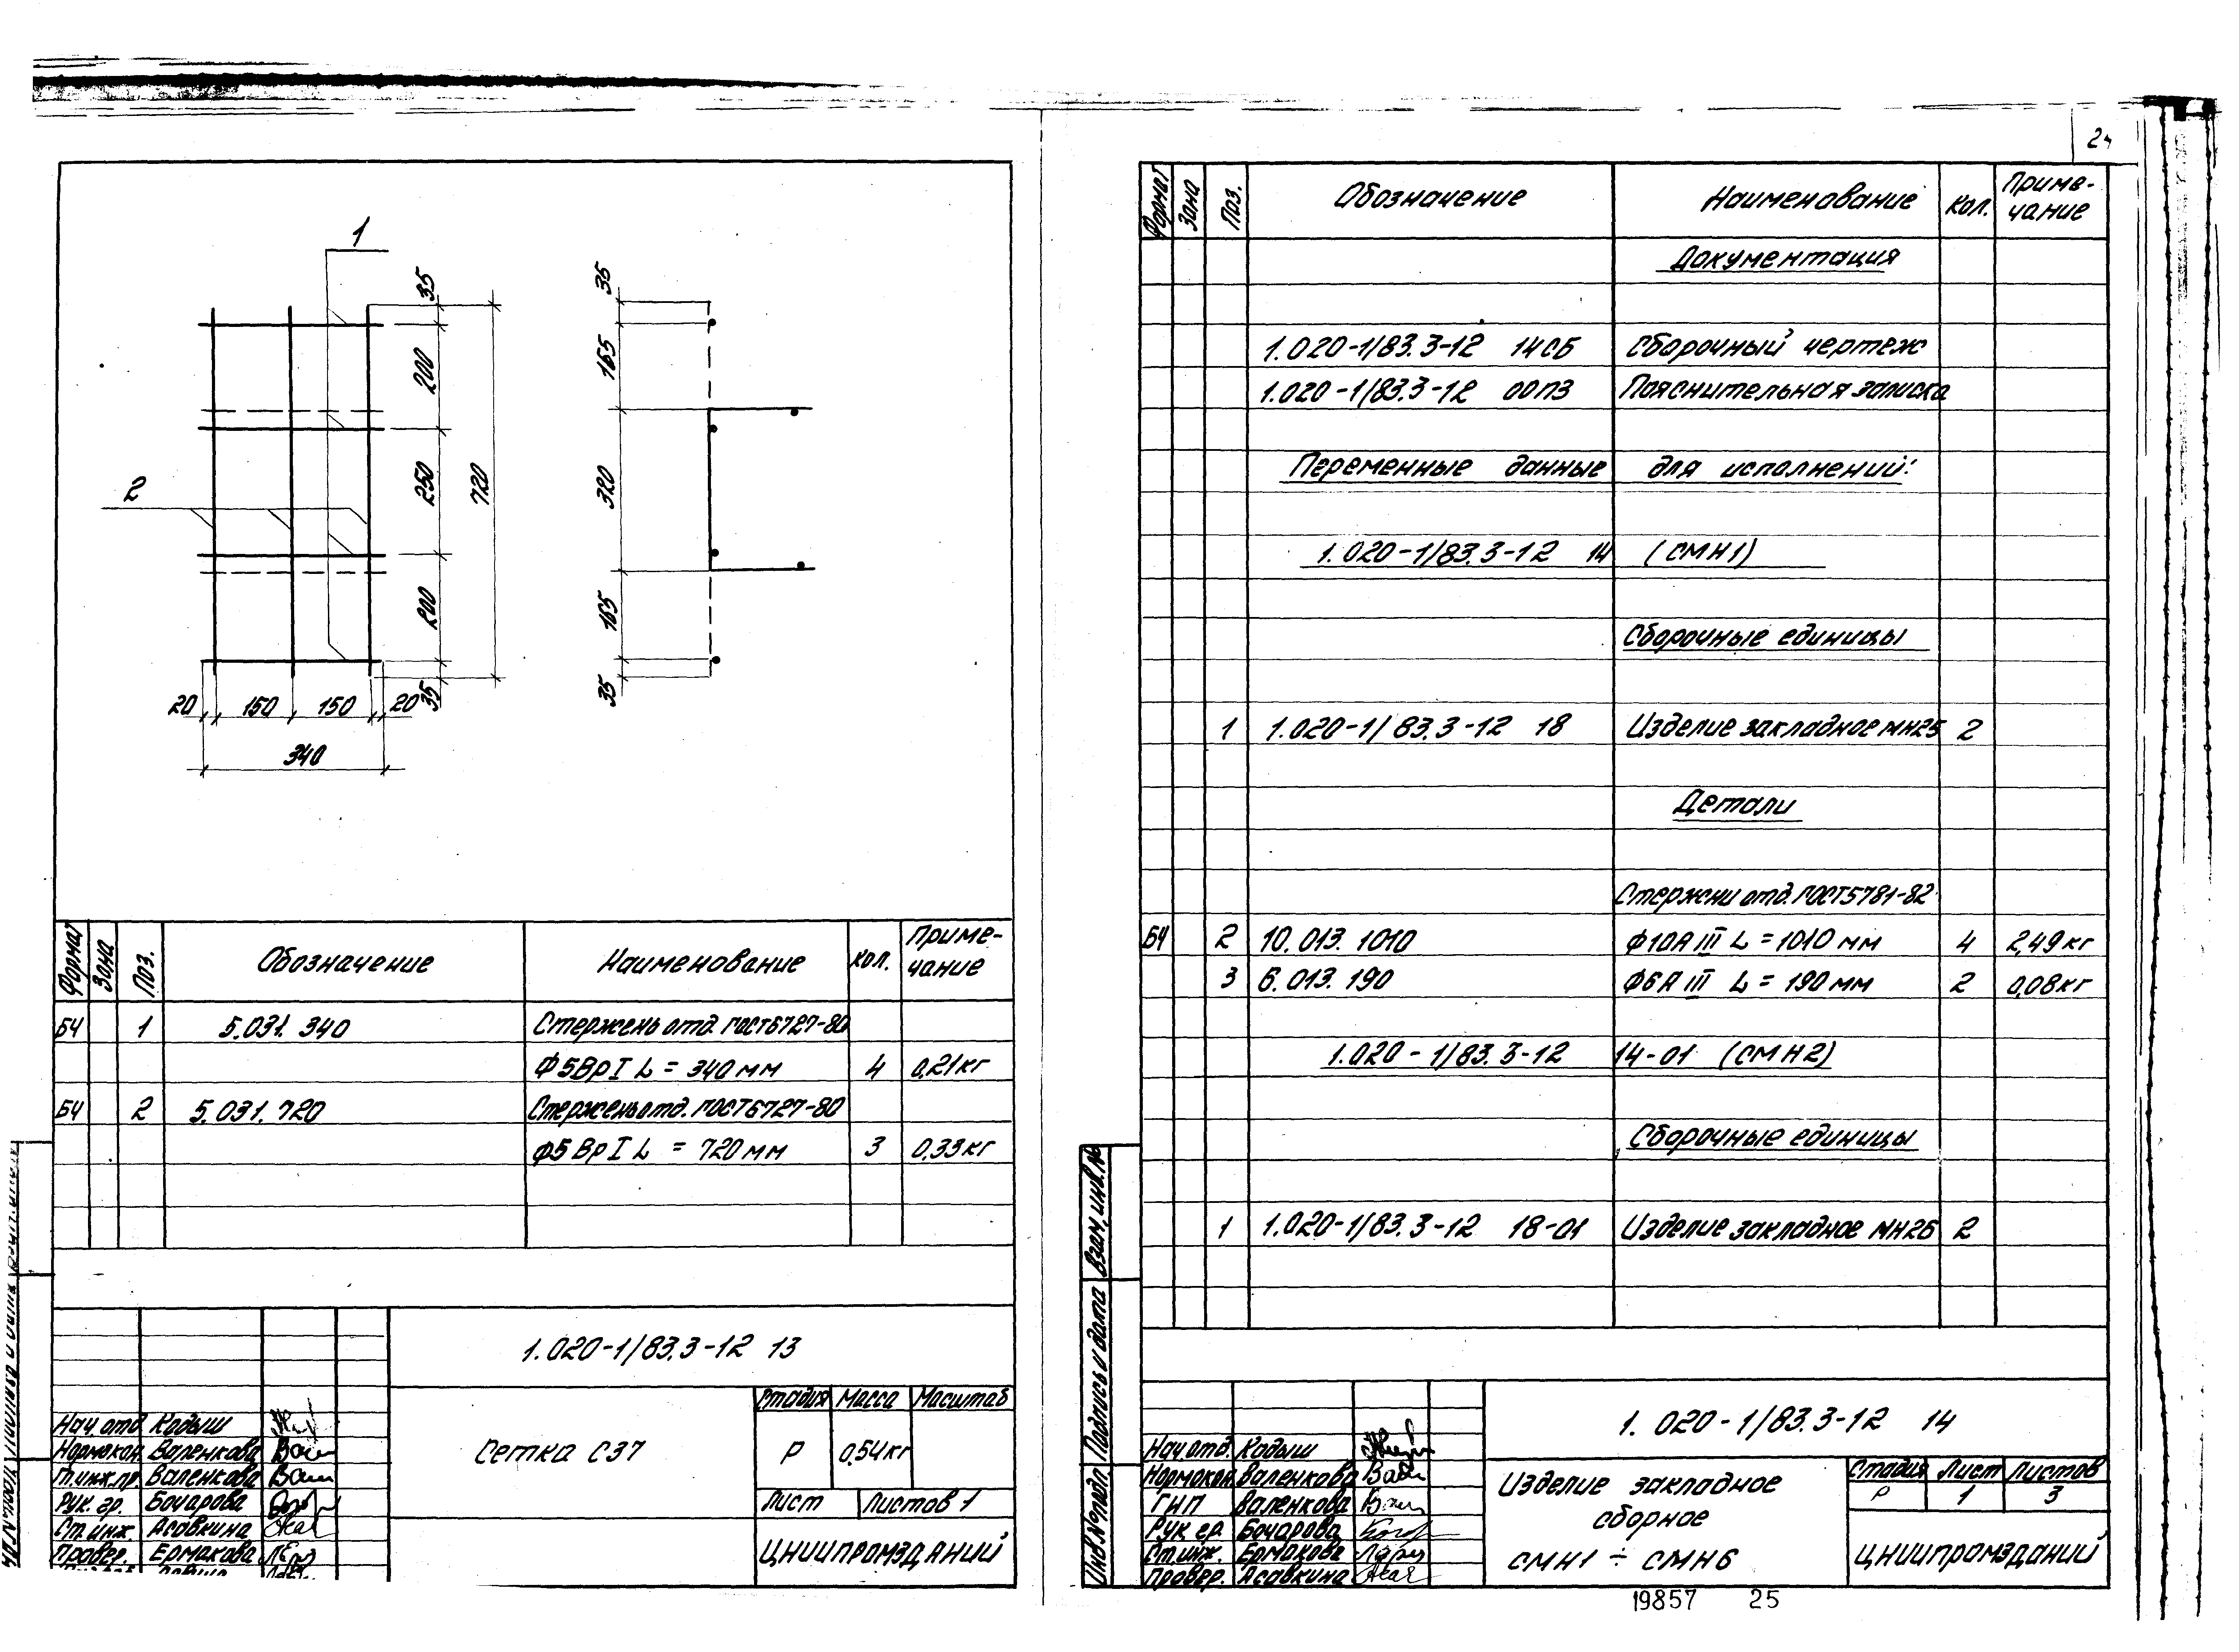 24
1
35
200
250
200
35
720
2
20 150 150 20
340
35
165
320
165
35
Формат Зона Поз. Обозначение Наименование Кол. Приме-чание
БЧ 1 5.031.340 Стержень отд. ГОСТ6727-80
Ф5ВрI L = 340 мм 4 0,21кг
БЧ 2 5.031.720 Стержень отд. ГОСТ6727-80
Ф5ВрI L = 720 мм 3 0,33кг
1.020-1/83.3-12 13
Стадия Масса Масштаб
Сетка С37 Р 0,54кг
Лист Листов 1
ЦНИИПРОМЗДАНИЙ
Нач.отд. Кодыш
Нормокон. Валенкова
Гл.инж.пр. Валенкова
Рук. гр. Бочарова
Ст.инж. Асавкина
Провер. Ермакова
Формат Зона Поз. Обозначение Наименование Кол. Приме-чание
Документация
1.020-1/83.3-12 14СБ Сборочный чертеж
1.020-1/83.3-12 00ПЗ Пояснительная записка
Переменные данные для исполнений:
1.020-1/83.3-12 14 (СМН1)
Сборочные единицы
1 1.020-1/83.3-12 18 Изделие закладное МН25 2
Детали
Стержни отд. ГОСТ5781-82
БЧ 2 10.013.1010 Ф10АIII L = 1010 мм 4 2,49кг
3 6.013.190 Ф6АIII L = 190 мм 2 0,08кг
1.020-1/83.3-12 14-01 (СМН2)
Сборочные единицы
1 1.020-1/83.3-12 18-01 Изделие закладное МН26 2
Взам.инв.№
Подпись и дата
Инв.№подл.
1.020-1/83.3-12 14
Нач.отд. Кодыш
Нормокон. Валенкова
ГИП Валенкова
Рук. гр. Бочарова
Ст.инж. Ермакова
Провер. Асавкина
Изделие закладное
сборное
СМН1 ÷ СМН6
Стадия Лист Листов
Р 1 3
ЦНИИПРОМЗДАНИЙ
19857 25